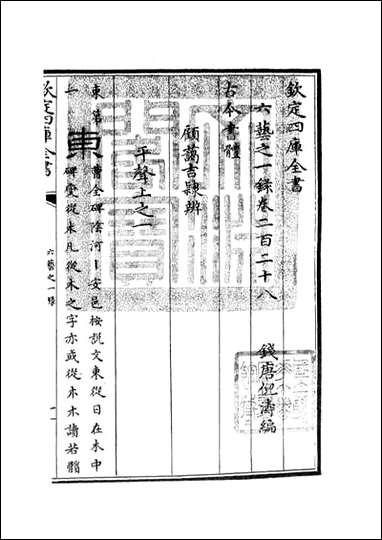 欽定四庫全書
六藝之一録卷二百二十八
錢唐倪濤編
古今書體
顧藹吉隸辨
平聲上之一
東第一
東
曹全碑陰河丨安邑按説文東從日在木中
碑變從木凡從木之字亦或從木木讀若髕
欽定四庫全書
六藝之一録
一